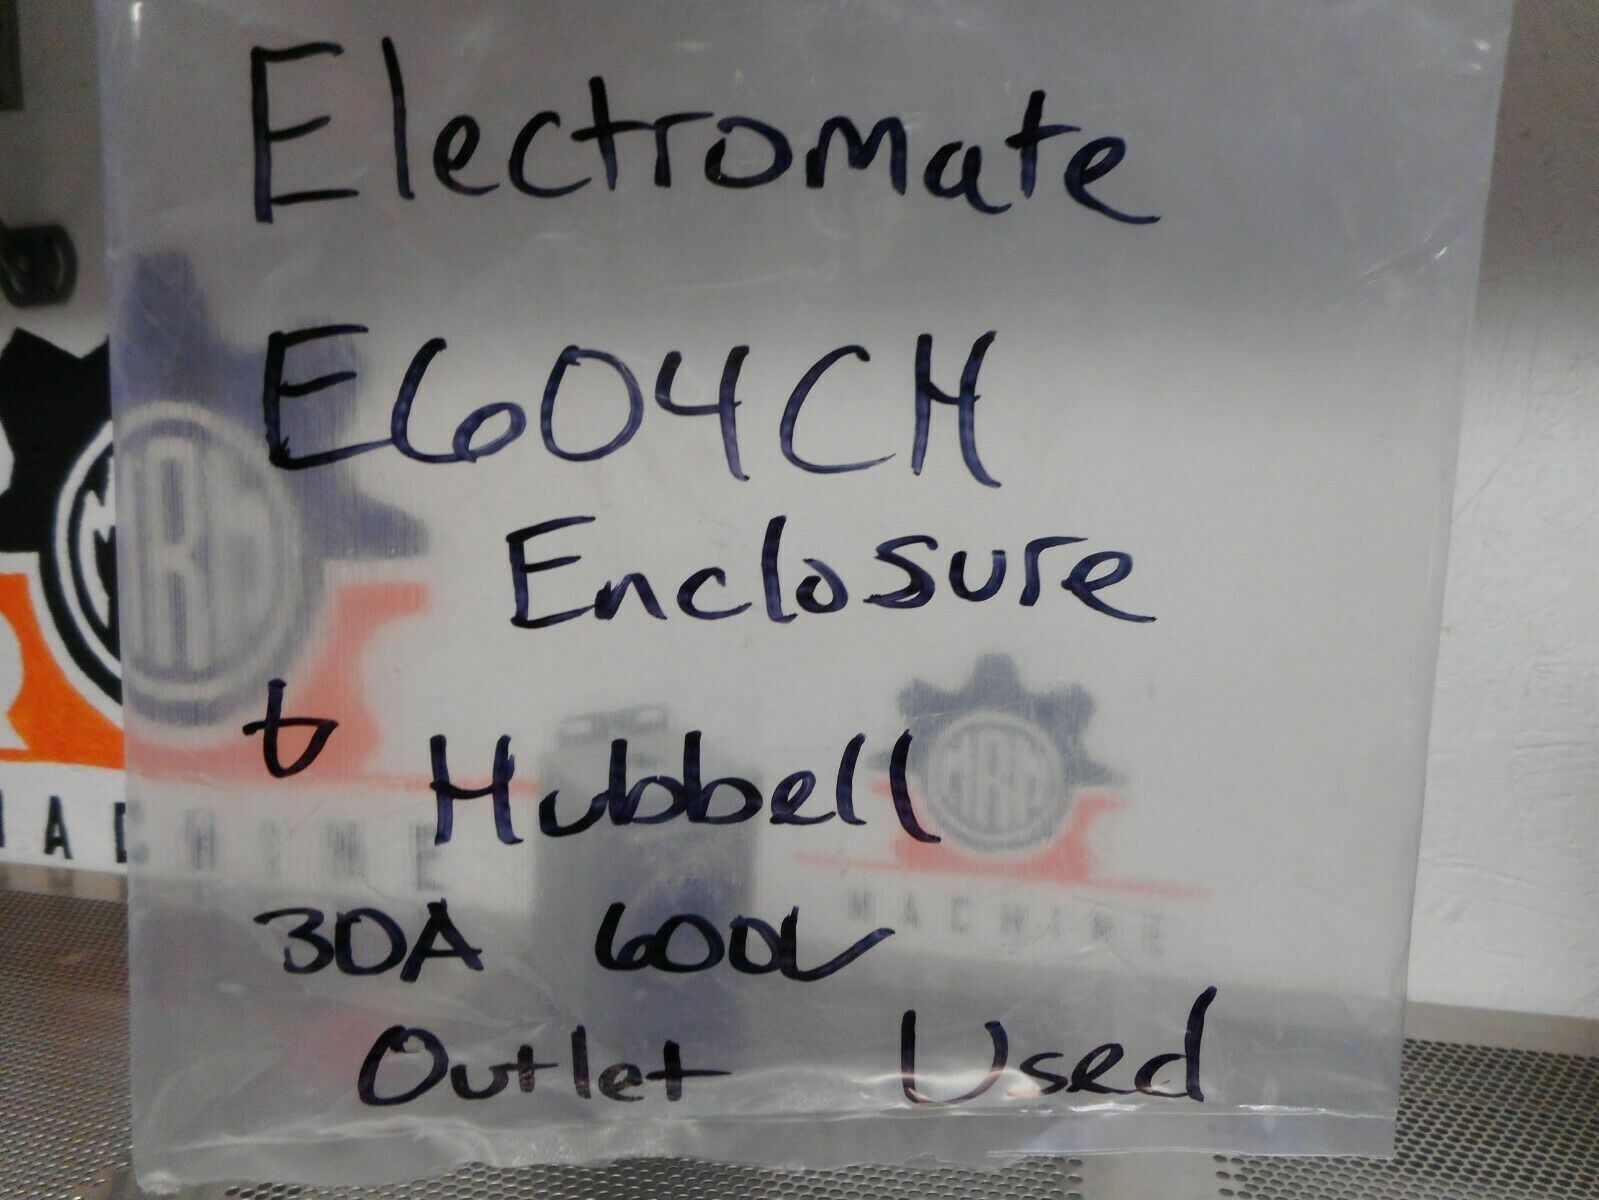 Electromate
E604CH
Enclosure
&
Hubbell
30A 600V
Outlet Used
MRG
MACHINE
MACHINE